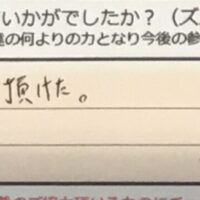 いかがでしたか？（ズ
達の何よりの力となり今後の参
頂けた。